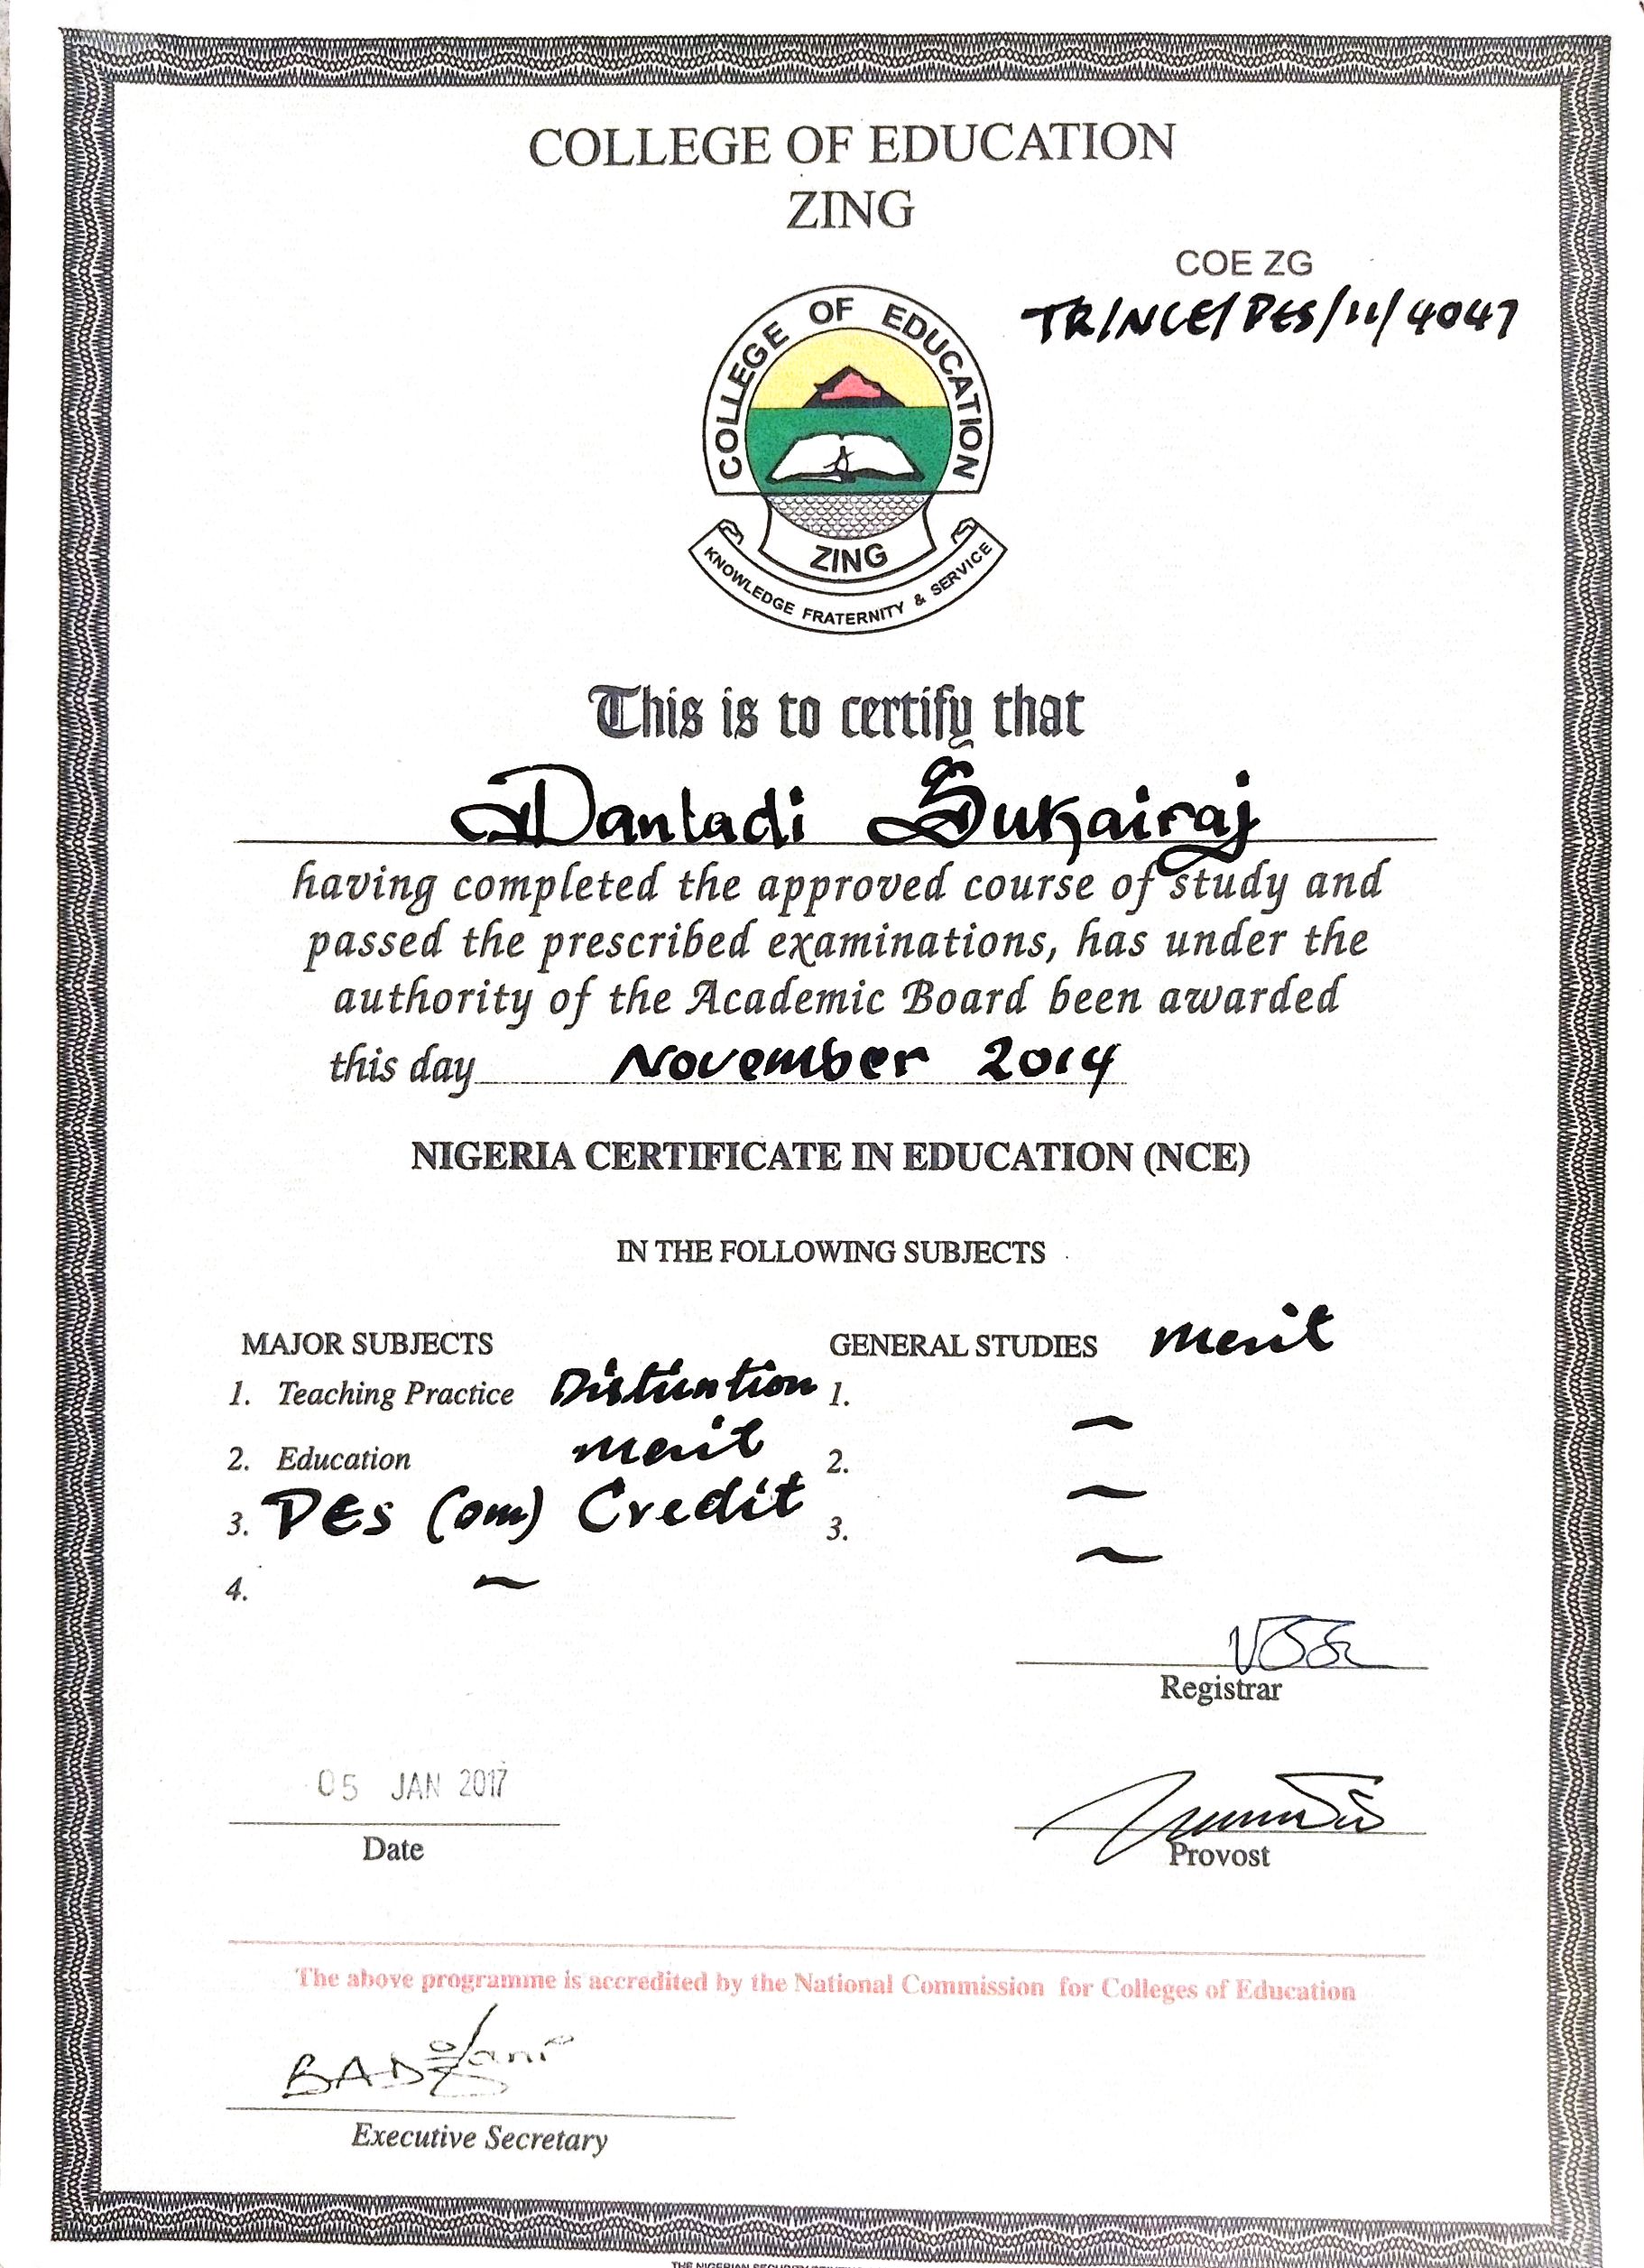 COLLEGE OF EDUCATION
ZING
COE ZG
TR/NCE/PES/11/4047
COLLEGE OF EDUCATION
ZING
KNOWLEDGE FRATERNITY & SERVICE
This is to certify that
Danladi Sukairaj
having completed the approved course of study and
passed the prescribed examinations, has under the
authority of the Academic Board been awarded
this day November 2014
NIGERIA CERTIFICATE IN EDUCATION (NCE)
IN THE FOLLOWING SUBJECTS
MAJOR SUBJECTS GENERAL STUDIES Merit
1. Teaching Practice Distinction 1. ~
2. Education Merit 2. ~
3. PES (DM) Credit 3. ~
4. ~
Registrar
05 JAN 2017
Date
Provost
The above programme is accredited by the National Commission for Colleges of Education
Executive Secretary
THE NIGERIAN SECURITY